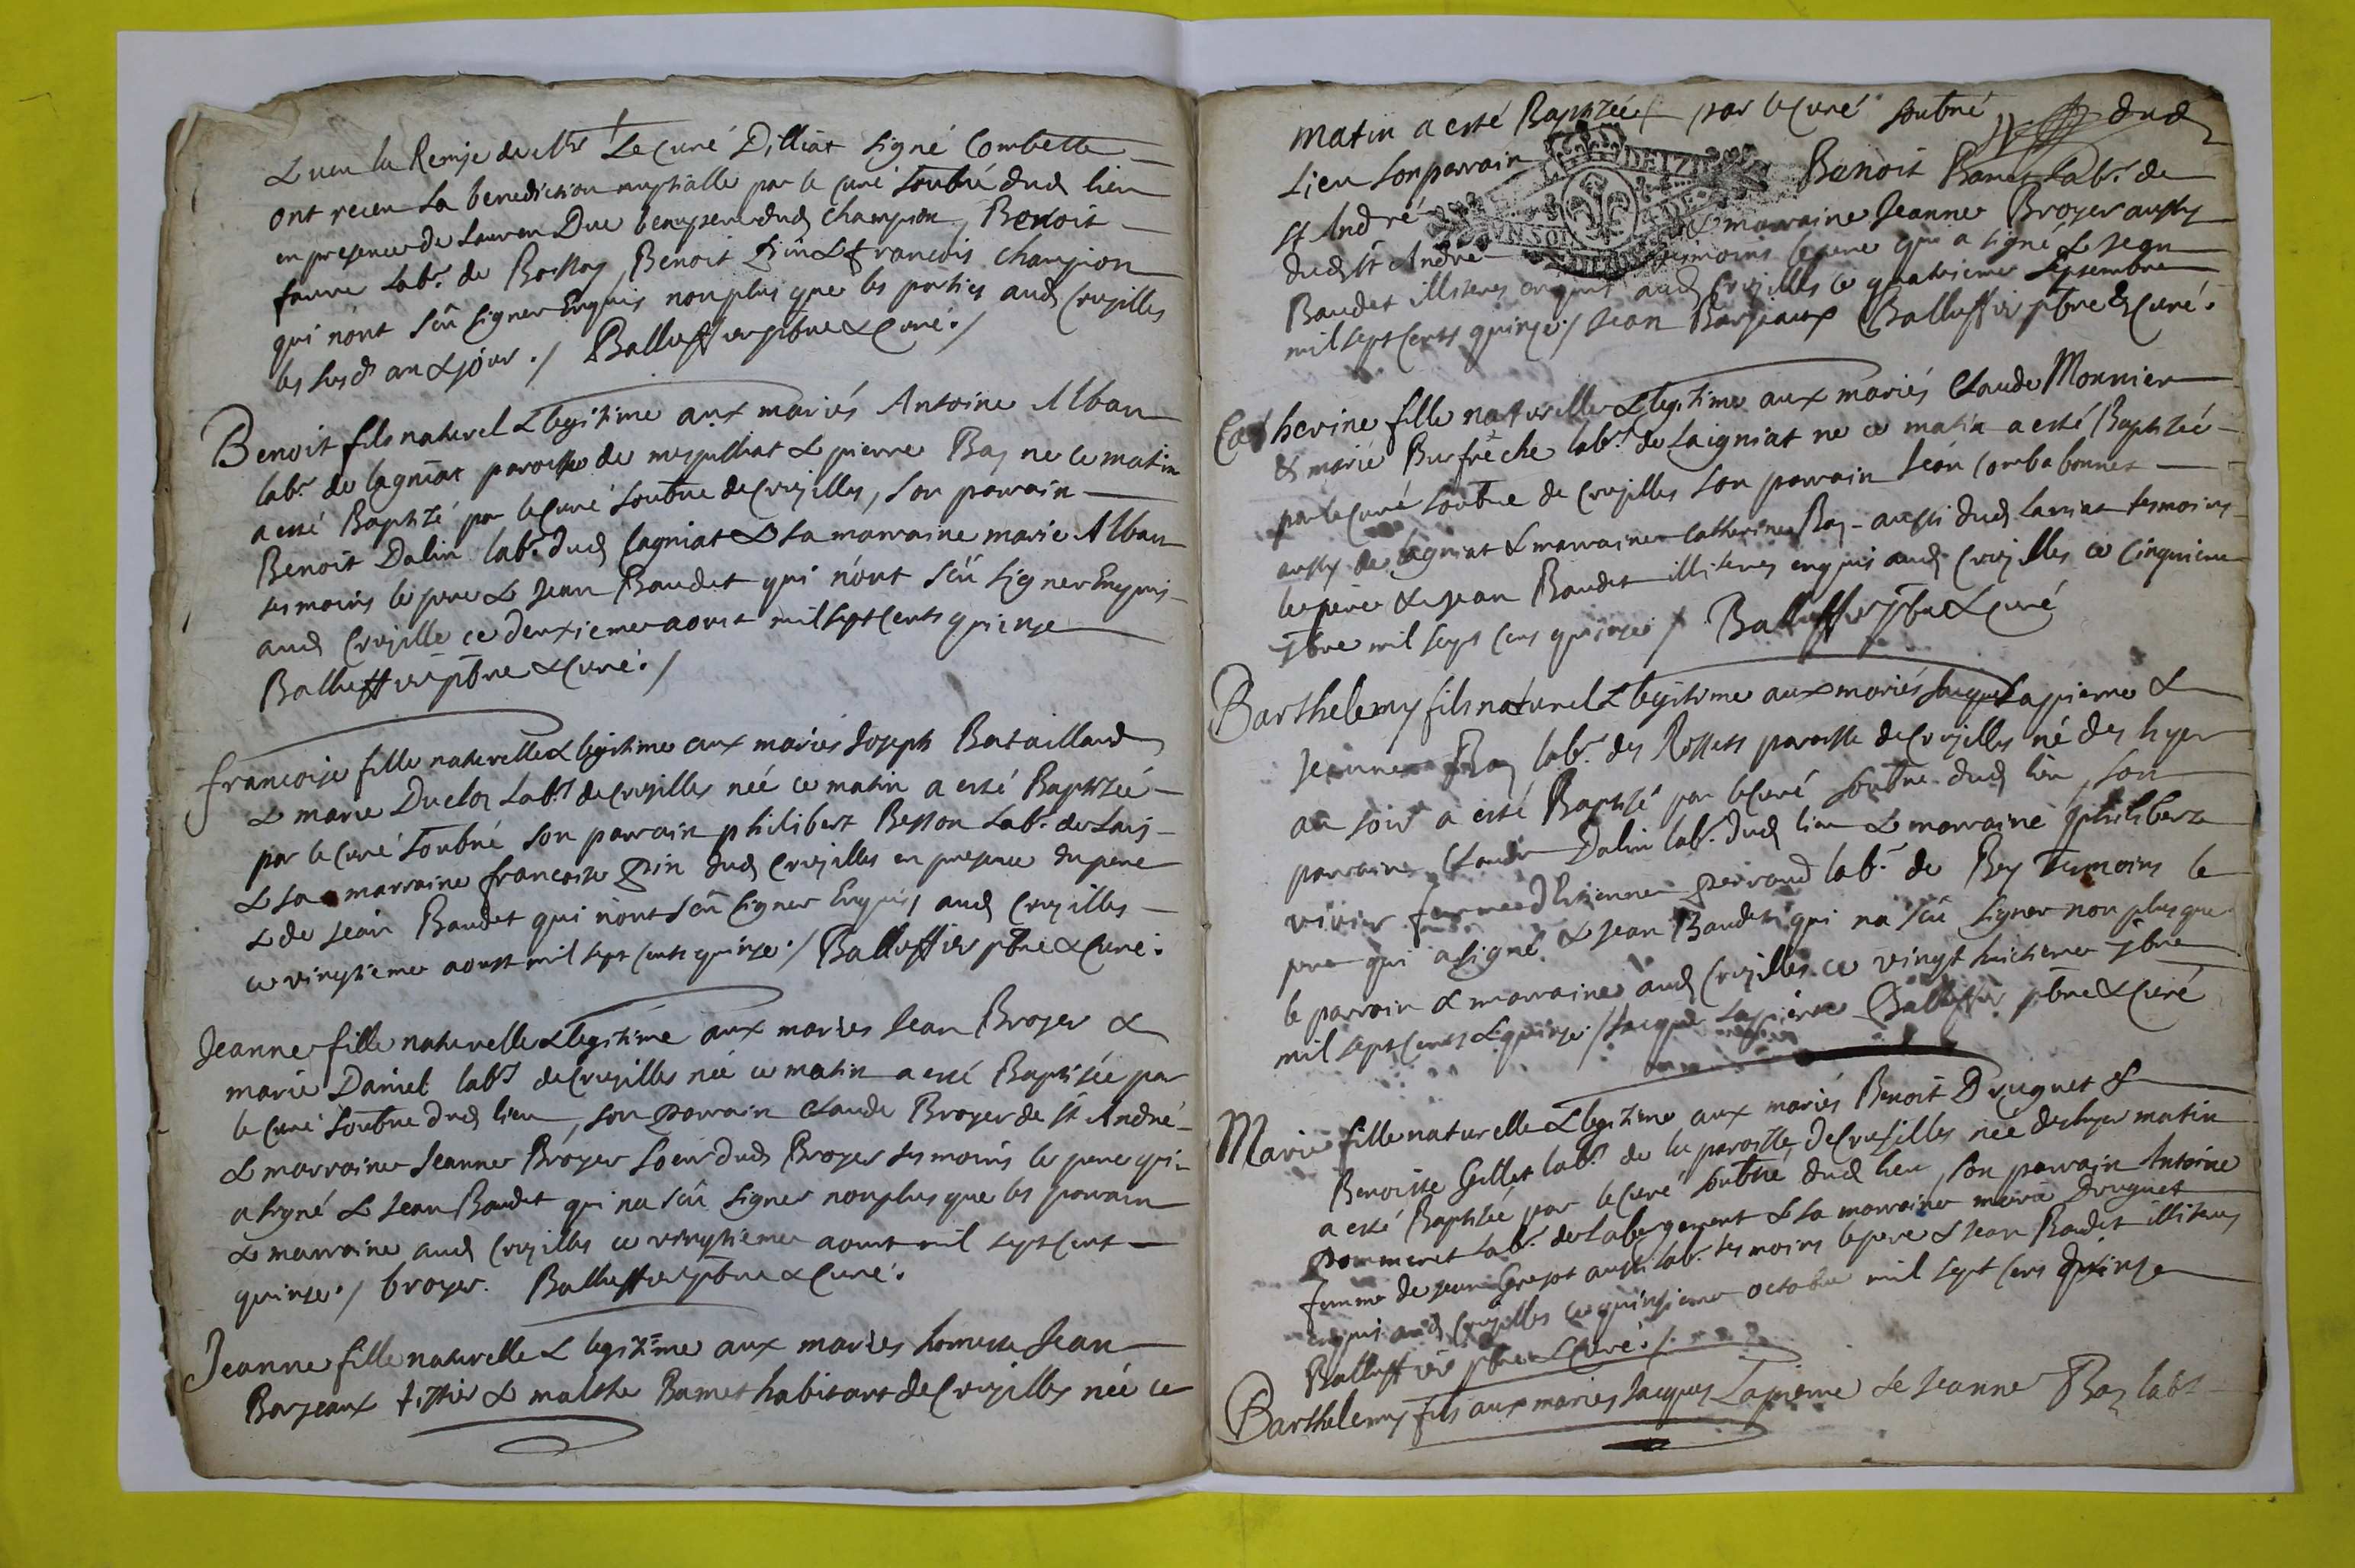 & veu la Remise de Mr Le Curé Dilliat signé Combette
ont receu la benediction nuptialle par le Curé soubné dud lieu
en presence de Lauren Duc beaupere dud Champion, Benoit
favre labr. de Boissey, Benoit Pin & francois Champion
qui nont sçû signer Enquis non plus que les parties aud Crusilles
les susd an & jour ./ Balluffier pbre & Curé ./
Benoit fils naturel & legitime aux mariés Antoine Alban
labr. de lagniat paroisse de & pierre Bay ne ce matin
a esté Baptizé par le Curé soubné de Crusilles, son parrain
Benoit Dalin labr. dud lagniat & la marraine marie Alban
tesmoins le pere & Jean Baudet qui n'ont sçû signer Enquis
aud Crusille ce deuxieme aoust mil sept cents quinze
Balluffier pbre & Curé ./
francoise fille naturelle & legitime aux mariés Joseph Bataillard
& marie Duclos labrs de Crusilles née ce matin a esté Baptizée
par le Curé soubné son parrain philibert Besson labr. de
& sa marraine francoise Pin dud Crusilles en presence du pere
& de Jean Baudet qui n'ont sçû signer Enquis, aud Crusilles
ce vingtieme aoust mil sept cents quinze ./ Balluffier pbre & Curé .
Jeanne fille naturelle & legitime aux mariés Jean Broyer &
marie Daniel labrs de Crusilles née ce matin a esté Baptisée par
le Curé soubné dud lieu, son parrain Claude Broyer de st André
& marraine Jeanne Broyer soeur dud Broyer tesmoins le pere qui
a signé & Jean Baudet qui na sçû signer non plus que les parrain
& marraine aud Crusilles ce vingtieme aoust mil sept cent
quinze ./ broyer. Balluffier pbre & Curé .
Jeanne fille naturelle & legitime aux mariés honneste Jean
Barjeaux tissier & malthe Bamet habitant de Crusilles née ce
matin a esté Baptizée par le Curé soubné dud
Lieu son parrain Benoit Bamet labr. de
st André & marraine Jeanne Broyer aussy
dud st André tesmoins le pere qui a signé & Jean
Baudet illiteres enquis aud Crusilles ce quatrieme septembre
mil sept cents quinze ./ Jean Barjeaux Balluffier pbre & Curé .
Catherine fille naturelle & legitime aux mariés Claude Monnier
& marie Burfreche labrs de Laigniat ne ce matin a esté Baptizée
par le Curé soubné de Crusilles son parrain Jean Combabonnet
aussy de lagniat & marraine Catherine Bay aussi dud tesmoins
le pere & Jean Baudet illiteres enquis aud Crusilles ce Cinquieme
7bre mil sept cens quinze / Balluffier pbre & Curé
Barthelemy fils naturel & legitime aux mariés Jacque Lapierre &
Jeanne Bay labrs des Rossets paroisse de Crusilles né des hyer
au soir a esté Baptisé par le Curé soubné dud lieu, son
parrain Claude Dalin labr. dud lieu & marraine philiberte
vivier femme d'Estienne perraud labr. de Bey Temoins le
pere qui a signé & Jean Baudet qui na sçû signer non plus que
le parrain & marraine aud Crusilles ce vingt huictieme 7bre
mil sept cents & quinze ./ Jacque Lapierre Balluffier pbre & Curé
Marie fille naturelle & legitime aux mariés Benoit Druguet &
Benoiste Gillet labrs de la paroisse de Crusilles née des hyer matin
a esté Baptisée par le Curé soubné dud lieu, son parrain Antoine
pommeret labr. de labergement & sa marraine marie Druguet
femme de Jean aussi labr. tesmoins le pere & Jean Baudet illiteres
enquis aud Crusilles ce quinzieme octobre mil sept cens quinze
Balluffier pbre & Curé ./
Barthelemy fils aux mariés Jacques Lapierre & Jeanne Bay labrs